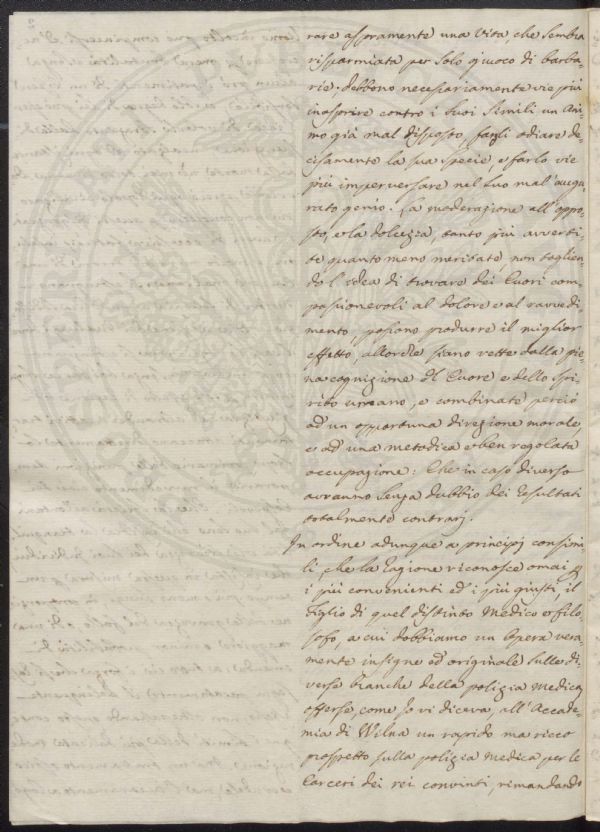 rare aspramente una vita, che sembra
risparmiata per solo giuoco di barba-
rie: debbono necessariamente vie più
inasprire contro i suoi simili un ani-
mo già mal disposto, fargli odiare de-
cisamente la sua specie, e farlo vie
più imperversare nel suo mal'augu-
rato genio. La moderazione all'oppo-
sto, e la dolcezza, tanto più avverti-
te quanto meno meritate, non toglien-
do l'idea di trovare dei Cuori com-
passionevoli al dolore e al ravvedi-
mento, possono produrre il miglior
effetto, allorchè siano rette dalla pie-
na cognizione del Cuore e dello Spi-
rito umano, e combinate perciò
ad un opportuna direzione morale,
e ad una metodica e ben regolata
occupazione: Che in caso diverso
avranno senza dubbio dei resultati
totalmente contrarj.
In ordine adunque a principj consimi-
li, che la ragione riconosce omai p
i più convenienti ed i più giusti, il
Figlio di quel distinto Medico e filo-
sofo, a cui dobbiamo un Opera vera-
mente insigne ed originale sulle di-
verse branche della polizia medica,
offerse, come so vi diceva, all'Accade-
mia di Wilna un rapido ma ricco
prospetto sulla polizia medica per le
Carceri dei rei convinti, rimandando